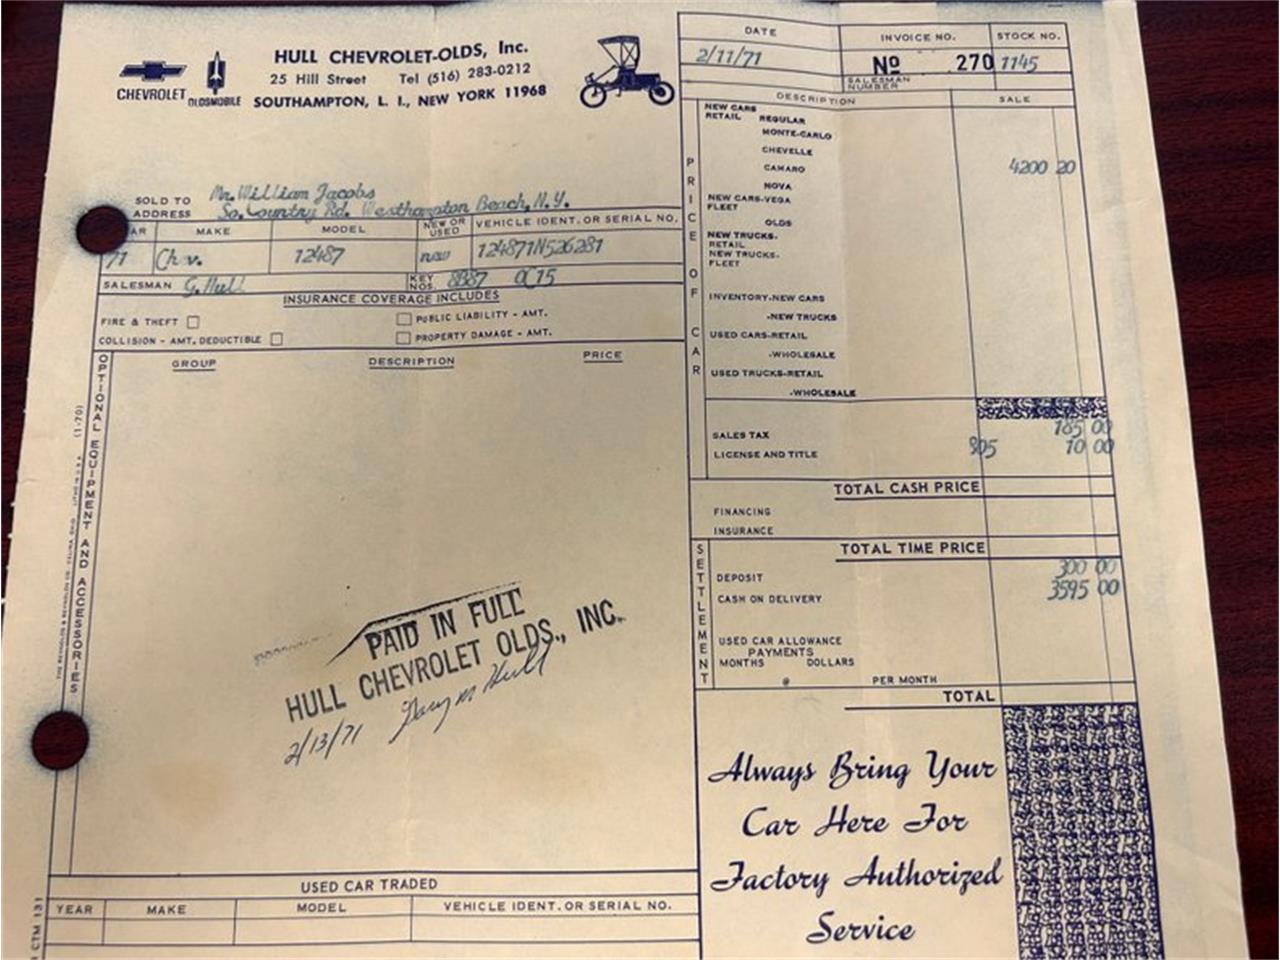 HULL CHEVROLET-OLDS, Inc.
25 Hill Street Tel (516) 283-0212
SOUTHAMPTON, L. I., NEW YORK 11968
CHEVROLET OLDSMOBILE
DATE INVOICE NO. STOCK NO.
2/11/71 No 270 1145
SALESMAN NUMBER
DESCRIPTION SALE
PRICE OF CAR
NEW CARS RETAIL REGULAR
MONTE-CARLO
CHEVELLE
CAMARO 4200 20
NOVA
NEW CARS-VEGA
FLEET
OLDS
NEW TRUCKS-
RETAIL
NEW TRUCKS-
FLEET
INVENTORY-NEW CARS
-NEW TRUCKS
USED CARS-RETAIL
-WHOLESALE
USED TRUCKS-RETAIL
-WHOLESALE
SALES TAX 185 00
LICENSE AND TITLE 805 10 00
TOTAL CASH PRICE
FINANCING
INSURANCE
TOTAL TIME PRICE
SETTLEMENT
DEPOSIT 300 00
CASH ON DELIVERY 3595 00
USED CAR ALLOWANCE
PAYMENTS
MONTHS DOLLARS
@ PER MONTH
TOTAL
Always Bring Your
Car Here For
Factory Authorized
Service
SOLD TO Mr. William Jacobs
ADDRESS So. Country Rd. Westhampton Beach, N.Y.
AR MAKE MODEL NEW OR USED VEHICLE IDENT. OR SERIAL NO.
71 Chv. 12487 new 124871N526281
SALESMAN G. Hull KEY NOS. 8B87 0C15
INSURANCE COVERAGE INCLUDES
FIRE & THEFT PUBLIC LIABILITY - AMT.
COLLISION - AMT. DEDUCTIBLE PROPERTY DAMAGE - AMT.
OPTIONAL EQUIPMENT AND ACCESSORIES
GROUP DESCRIPTION PRICE
(1-70)
LITHO IN U.S.A.
THE REYNOLDS & REYNOLDS CO., CELINA, OHIO
PAID IN FULL
HULL CHEVROLET OLDS., INC.
2/13/71 Gary M Hull
USED CAR TRADED
YEAR MAKE MODEL VEHICLE IDENT. OR SERIAL NO.
CTM 131